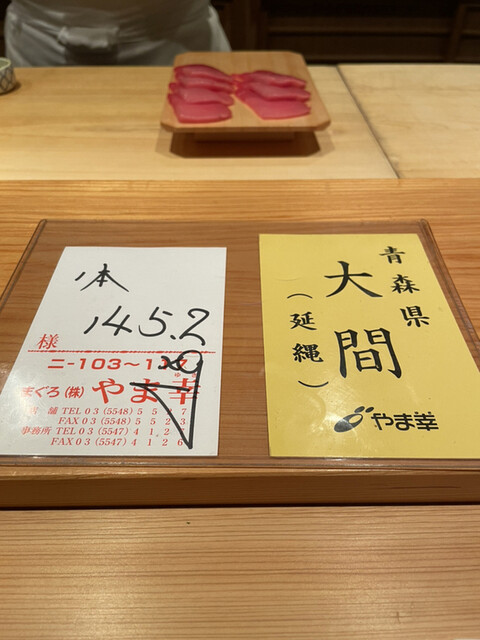 1本
145.2
様
ニ-103〜117
まぐろ(株) やま幸
店舗 TEL 03 (5548) 5517
FAX 03 (5548) 5523
事務所 TEL 03 (5547) 4127
FAX 03 (5547) 4126
青森県
大間
(延縄)
やま幸